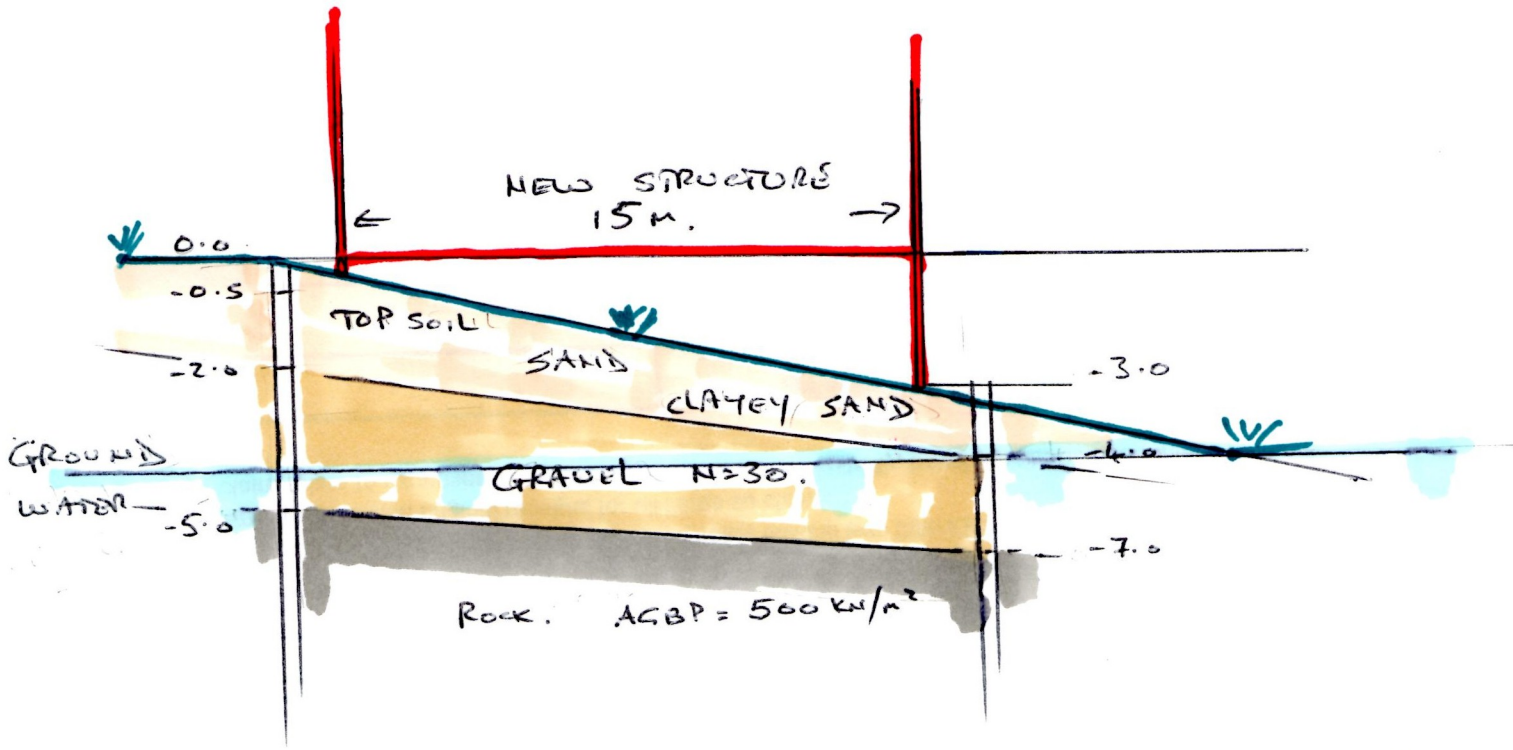 NEW STRUCTURE
← 15 M. →
0.0
-0.5
TOP SOIL
SAND
-2.0
-3.0
CLAYEY SAND
GROUND
WATER
-4.0
GRAVEL N=30.
-5.0
-7.0
ROCK. AGBP = 500 KN/M²